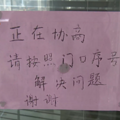 正在协高
请按照门口序号
解决问题
谢谢